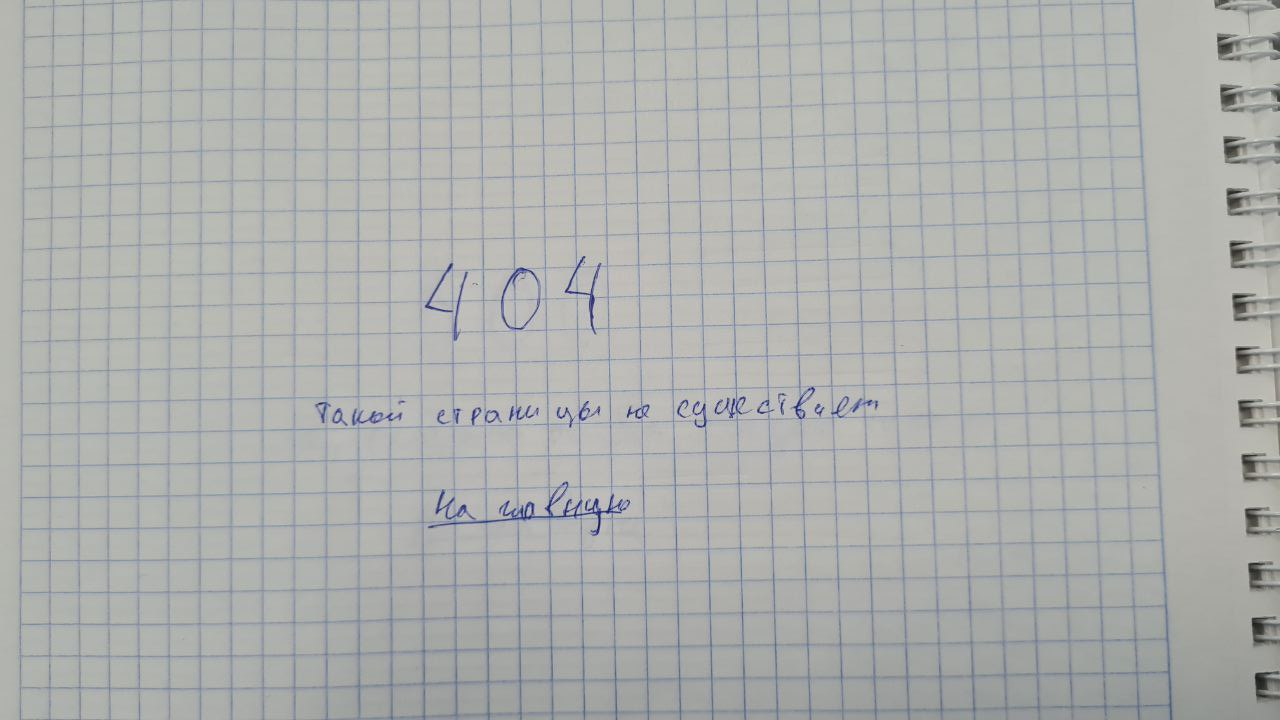 404
Такой страницы не существует
На главную